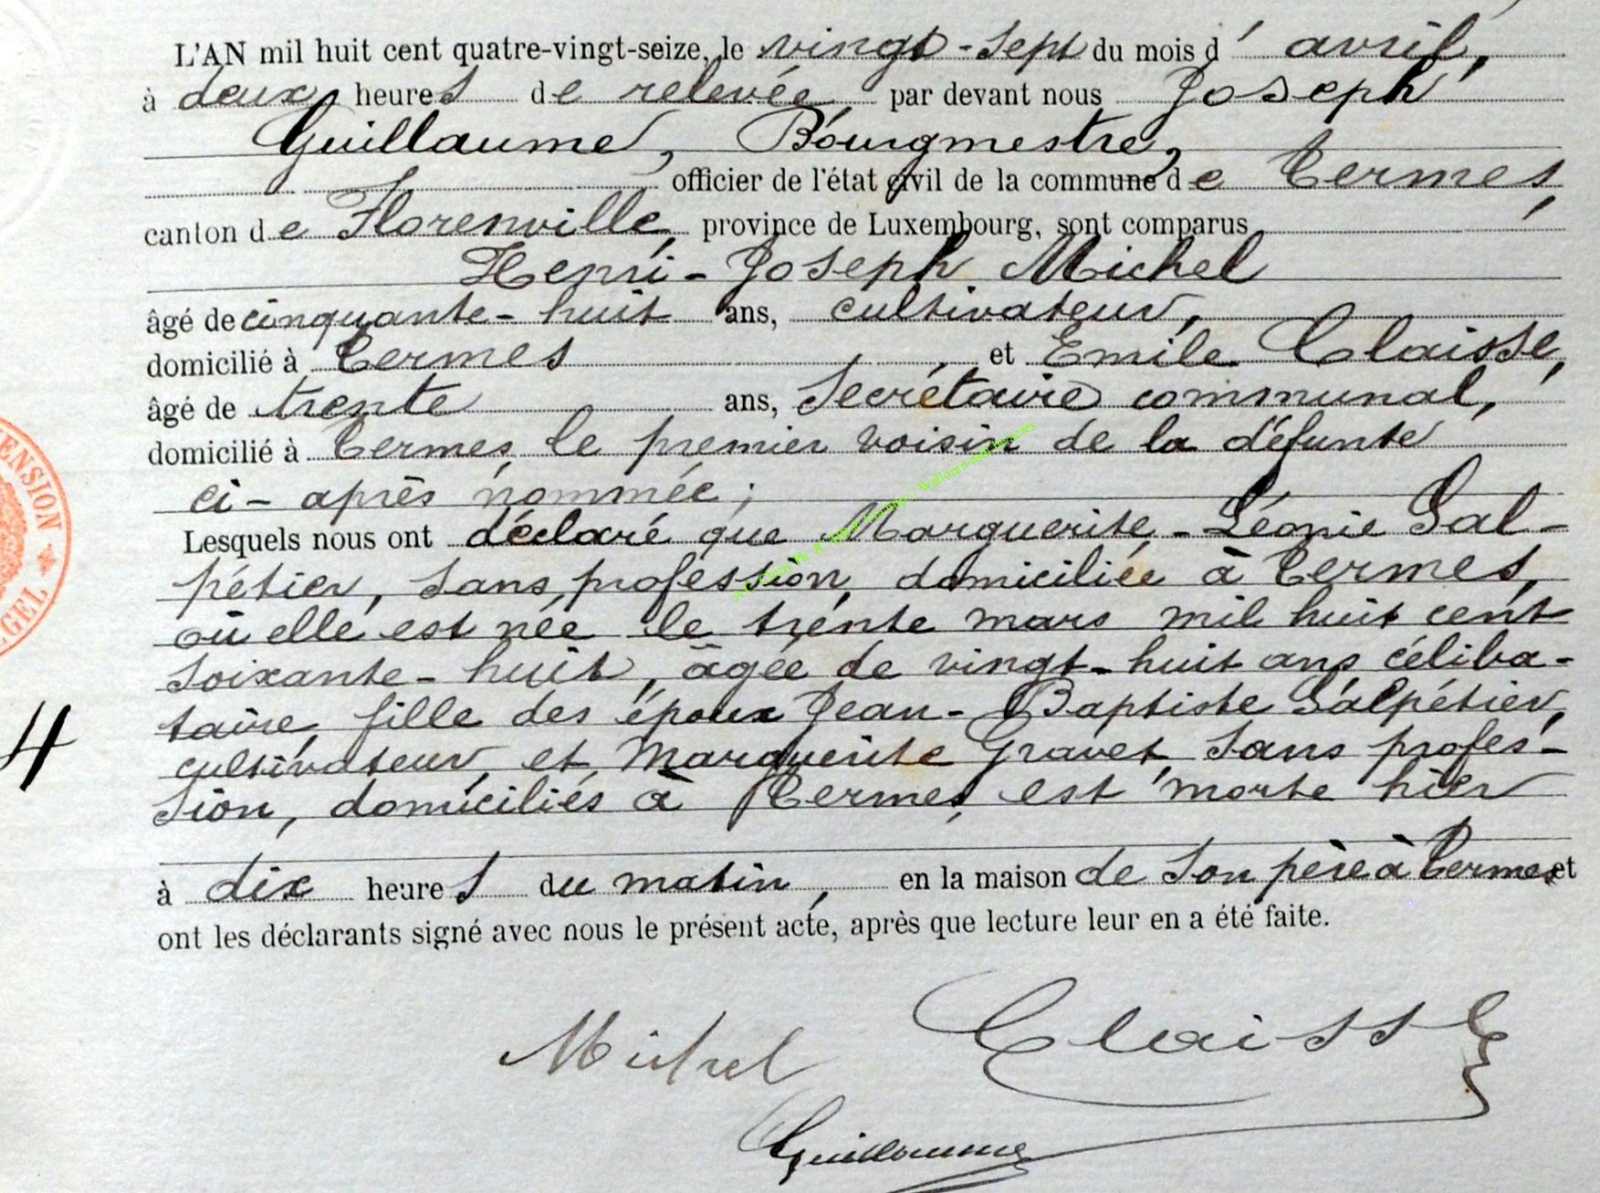 L'AN mil huit cent quatre-vingt-seize, le vingt-sept du mois d' avril,
à deux heures de relevée par devant nous Joseph
Guillaume, Bourgmestre,
officier de l'état civil de la commune de Termes,
canton de Florenville, province de Luxembourg, sont comparus
Henri-Joseph Michel
âgé de cinquante-huit ans, cultivateur,
domicilié à Termes et Emile Claisse,
âgé de trente ans, Secrétaire communal,
domicilié à Termes, le premier voisin de la défunte
ci-après nommée;
Lesquels nous ont déclaré que Marguerite-Léonie Sal-
pétier, sans profession, domiciliée à Termes,
où elle est née le trente mars mil huit cent
soixante-huit, âgée de vingt-huit ans, céliba-
taire, fille des époux Jean-Baptiste Salpétier,
cultivateur et Marguerite Gravet, sans profes-
sion, domiciliés à Termes, est morte hier
à dix heures du matin, en la maison de son père à Termes et
ont les déclarants signé avec nous le présent acte, après que lecture leur en a été faite.
4
ENSION
GEL
Michel
Claisse
Guillaume